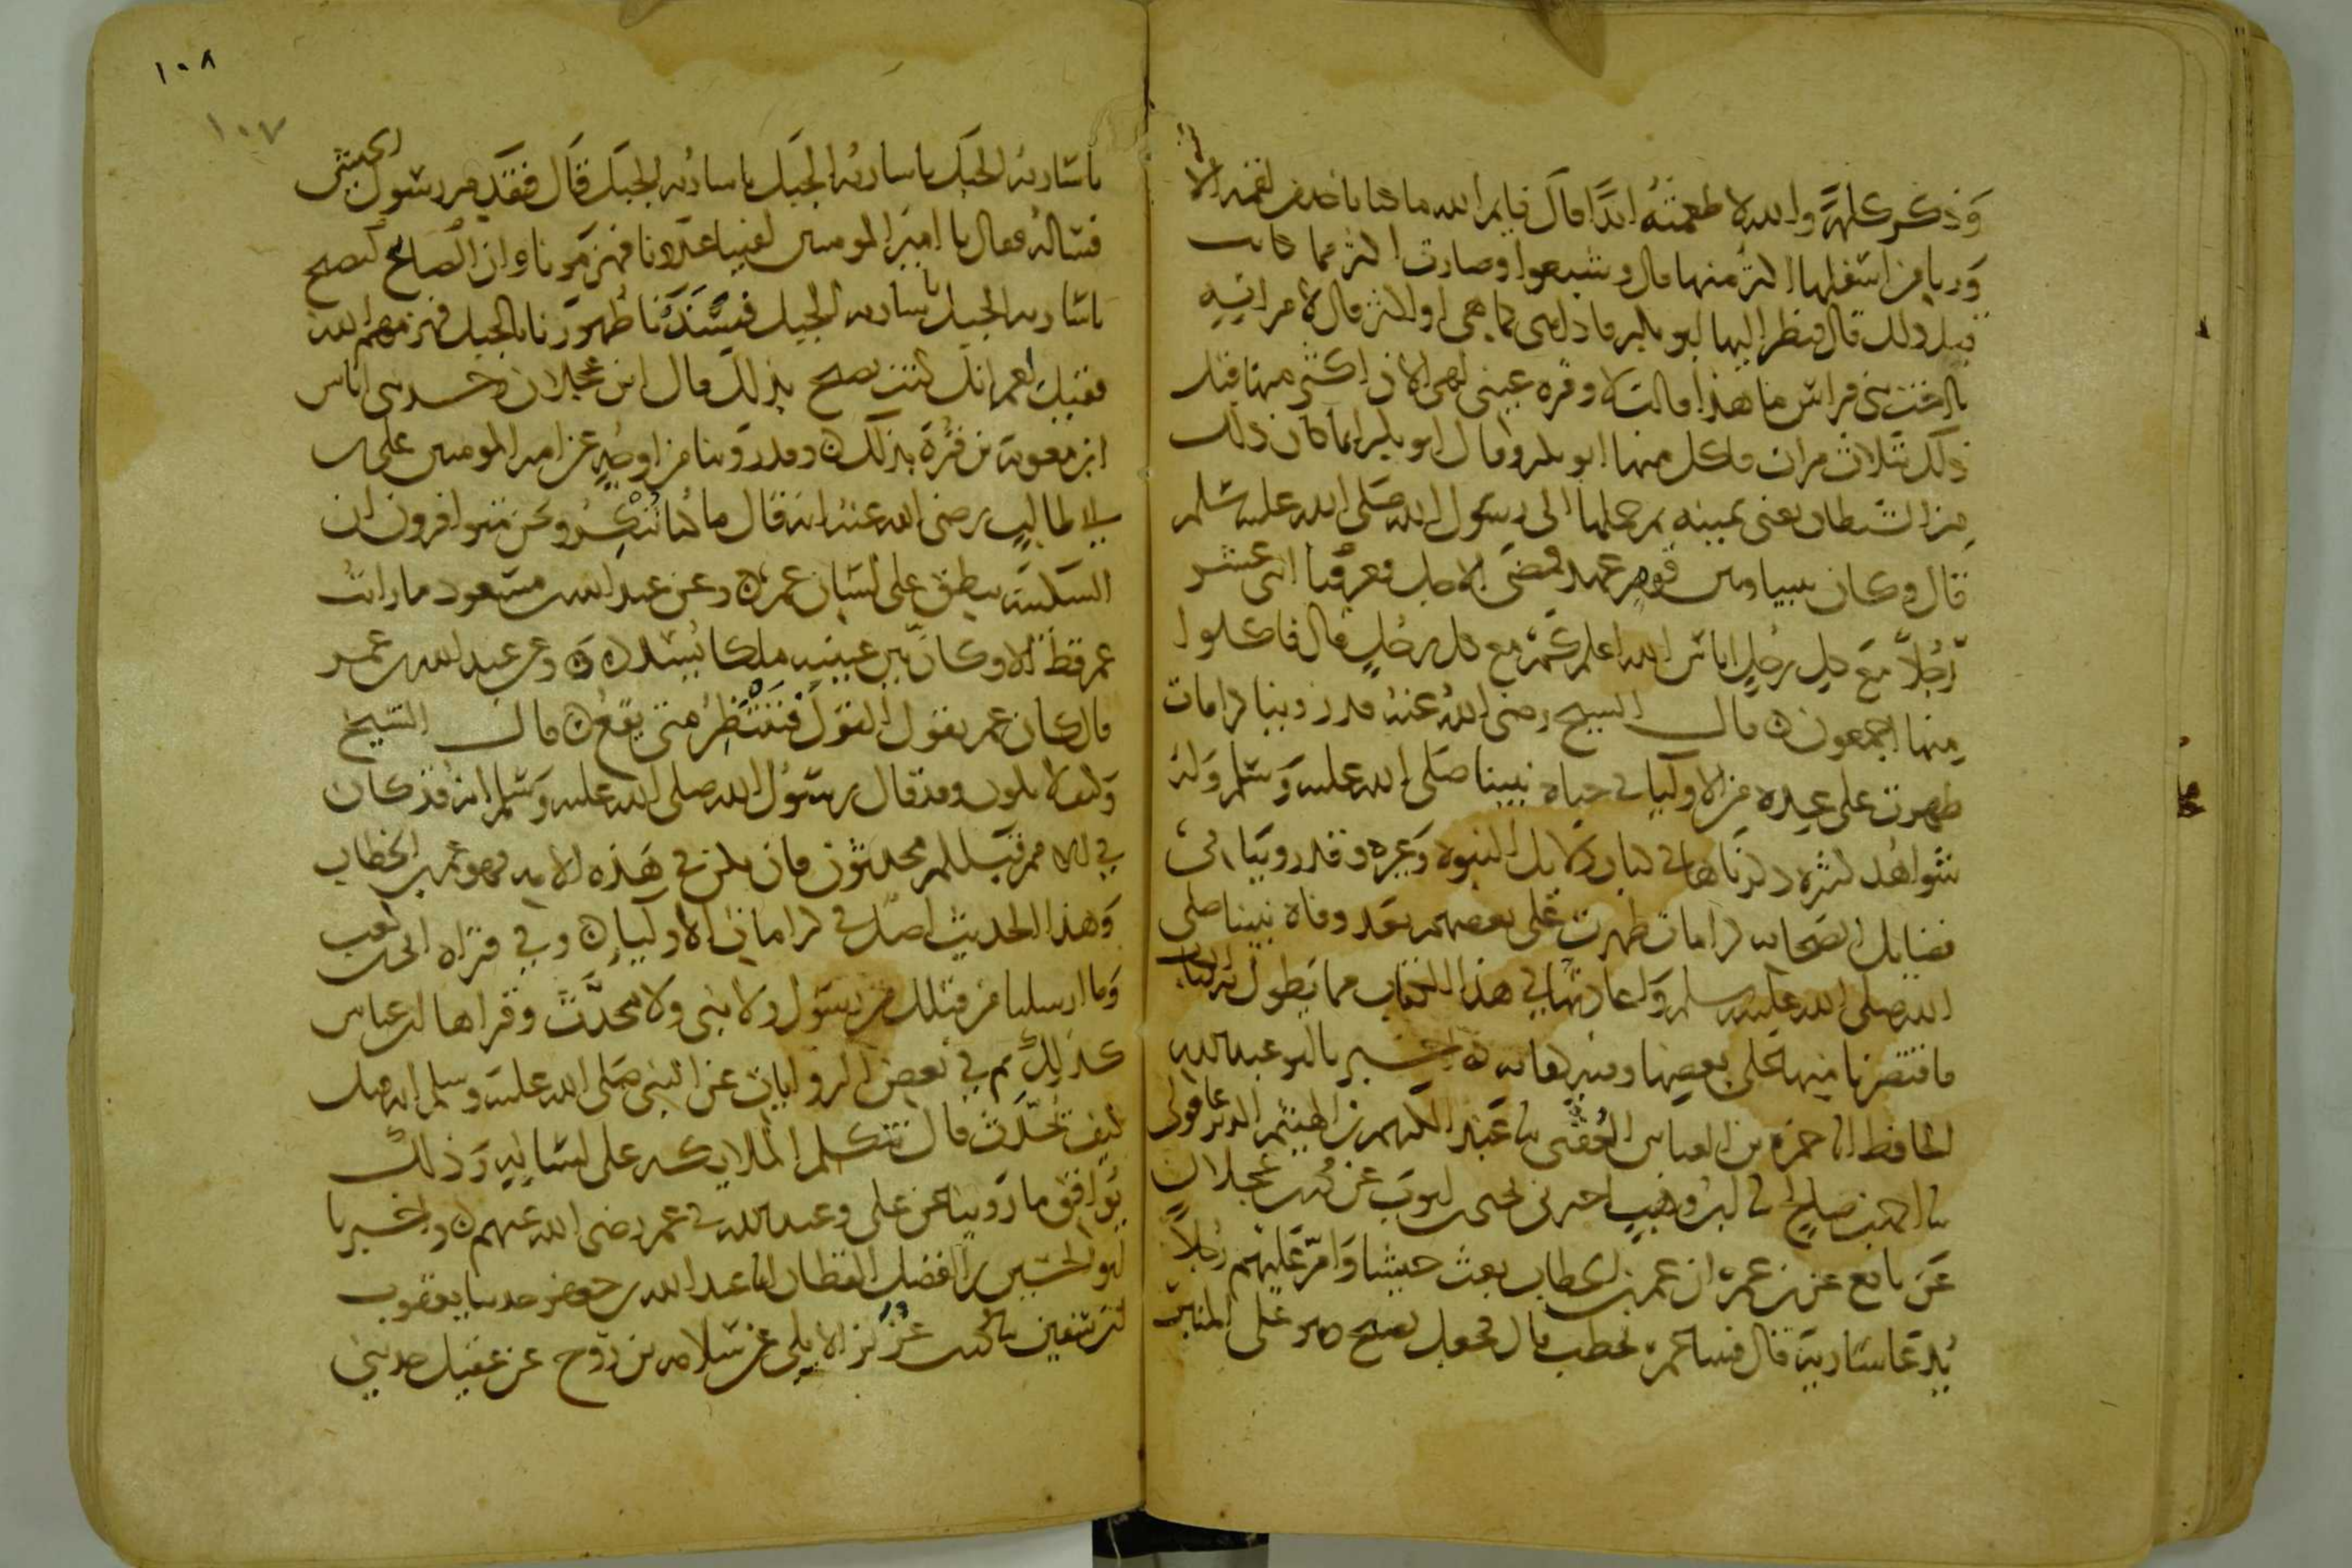 وَذكر كلمة والله لا طعمته ابدًا قال فايم الله ما كنا ناخذ من لقمة الا
وَربا من اسفلها اكثر منها قال وشبعوا وصارت اكثر مما كانت
قبل ذلك قال فنظر اليها ابو بكر فاذا هي كما هي او اكثر فقال لامراته
يا اخت بني فراس ما هذا قالت لا وقرة عيني لهي الان اكثر منها قبل
ذلك بثلاث مرات فاكل منها ابو بكر وقال ابو بكر انما كان ذلك
من الشيطان يعني يمينه ثم حملها الى رسول الله صَلى الله عليه وسلم
قال وكان بيننا وبين قوم عهد فمضى الاجل فعرفنا اثنى عشر
رجُلاً مع كل رجُل اناس الله اعلم كم مع كل رجل قال فاكلوا
منها اجمعون قال الشيخ رضي اللهُ عنه قد روينا كرامات
ظهرت على عهده من الاوليا في حياة نبينا صَلى الله عليه وَسَلم وَله
شواهُد كثيره ذكرناها في كتاب دلايل النبوه وَغيره وقد روينا في
فضايل الصحابه كرامات ظهرت على بعضهم بعد وفاة نبينا صلى
الله صلى الله عليه وسلم وَاعادتها في هذا الكتاب مما يطول به الكتاب
فاقتصرنا منها على بعضها وفيه كفايه اخبرنا ابو عبد الله
الحافظ انا حمزه بن العباس العُقبى نا عَبد الكريم بن الهيثم الديرعاقولي
نا احمد بن صالح نا ابن وهب اخبرني يحيى بن ايوب عن محمد بن عجلان
عَن نافع عن ابن عمر ان عمر بن الخطاب بعث جيشا وَامّر عَليهم رجُلاً
يُدعَا سَارية قال فبينا عمر يخطب قال فجعل يصيح وهو على المنبر
١٠٨
١٠٧
يا سَاريه الجبَل يا ساريُه الجبَل يا ساريُه الجبَل قَال فقدم رسول الجيش
فسَاله فقال يا امير المومنين لقينا عدونا فهزمونا وان الصايح ليصيح
يا سَاريه الجبل يا ساريه الجبل فشددنا ظهورنا بالجبل فهزمهم الله
فقيل لعمر انك كنت تصيح بذلك قال ابن عجلان وحدثني اياس
ابن معوية بن قُرّة بذلك وقد روينا من اوجه عن امير المومنين على بن
ابي طالب رضى الله عنه انه قال ما كنا نُنكِرُ ونحن متوافرون ان
السَكينَه تنطق على لسَان عمر وعن عبد الله بن مسَعود ما رايت
عمر قط الا وكانّ بين عينيه ملكا يُسدده وعن عبد الله بن عمر
قال كان عمر يقول القول فننتظرُ متى يقعُ قال الشيخ
وَكيف لا يكون وقد قال رسَوُل الله صلى الله عليه وَسَلم انه قد كان
في الامم قبلكم محدثون فان يكن في هَذه الامه فهو عمر بن الخطاب
وَهذا الحديث اصل في كرامات الاوليا وفي قراة ابي بن كعب
وَما ارسلنا من قبلك من رسَول ولا نبى ولا محدَّث وقراها ابن عباس
كذلِك ثم في بعض الروايات عن النبى صَلى الله عليه وسلم انه قيل
كيف تحدّث قال تتكلم الملايكه على لسَانِه وَذلك
يُوافق ما رَويناه عن على وعبد الله بن عمر رضى الله عنهم واخبرنا
ابو الحسَين بن الفضل القطان انا عبد الله بن جعفر حدثنا يعقوب
ابن سَفين نا محمد بن عُزيز الايلي عن سَلامه بن رَوح عن عقيل حدثني